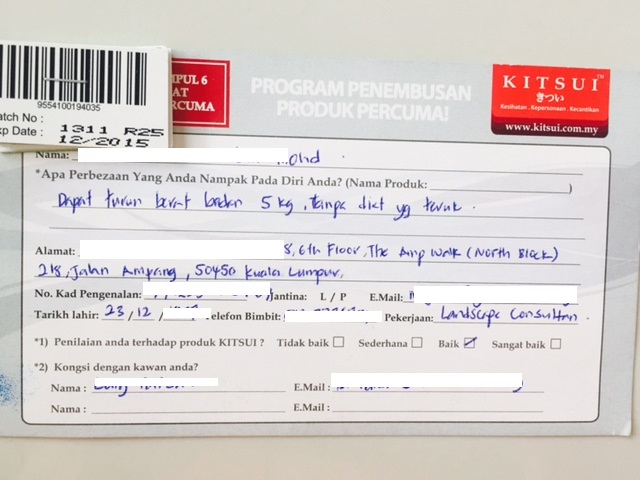 9554100194035
atch No :
xp Date :
1311 R25
12/2015
MPUL 6
AT
ERCUMA
PROGRAM PENEMBUSAN
PRODUK PERCUMA!
KITSUI™
きつい
Kesihatan . Kepersonaan . Kecantikan
www.kitsui.com.my
Nama:
*Apa Perbezaan Yang Anda Nampak Pada Diri Anda? (Nama Produk: )
Dapat turun berat badan 5 kg, tanpa diet yg teruk.
Alamat: 8, 6th Floor, The Amp Walk (North Block)
218, Jalan Ampang, 50450 Kuala Lumpur.
No. Kad Pengenalan: Jantina: L / P E.Mail:
Tarikh lahir: 23 / 12 / Telefon Bimbit: Pekerjaan: Landscape Consultan.
*1) Penilaian anda terhadap produk KITSUI ? Tidak baik Sederhana Baik Sangat baik
*2) Kongsi dengan kawan anda?
Nama : E.Mail :
Nama : E.Mail :